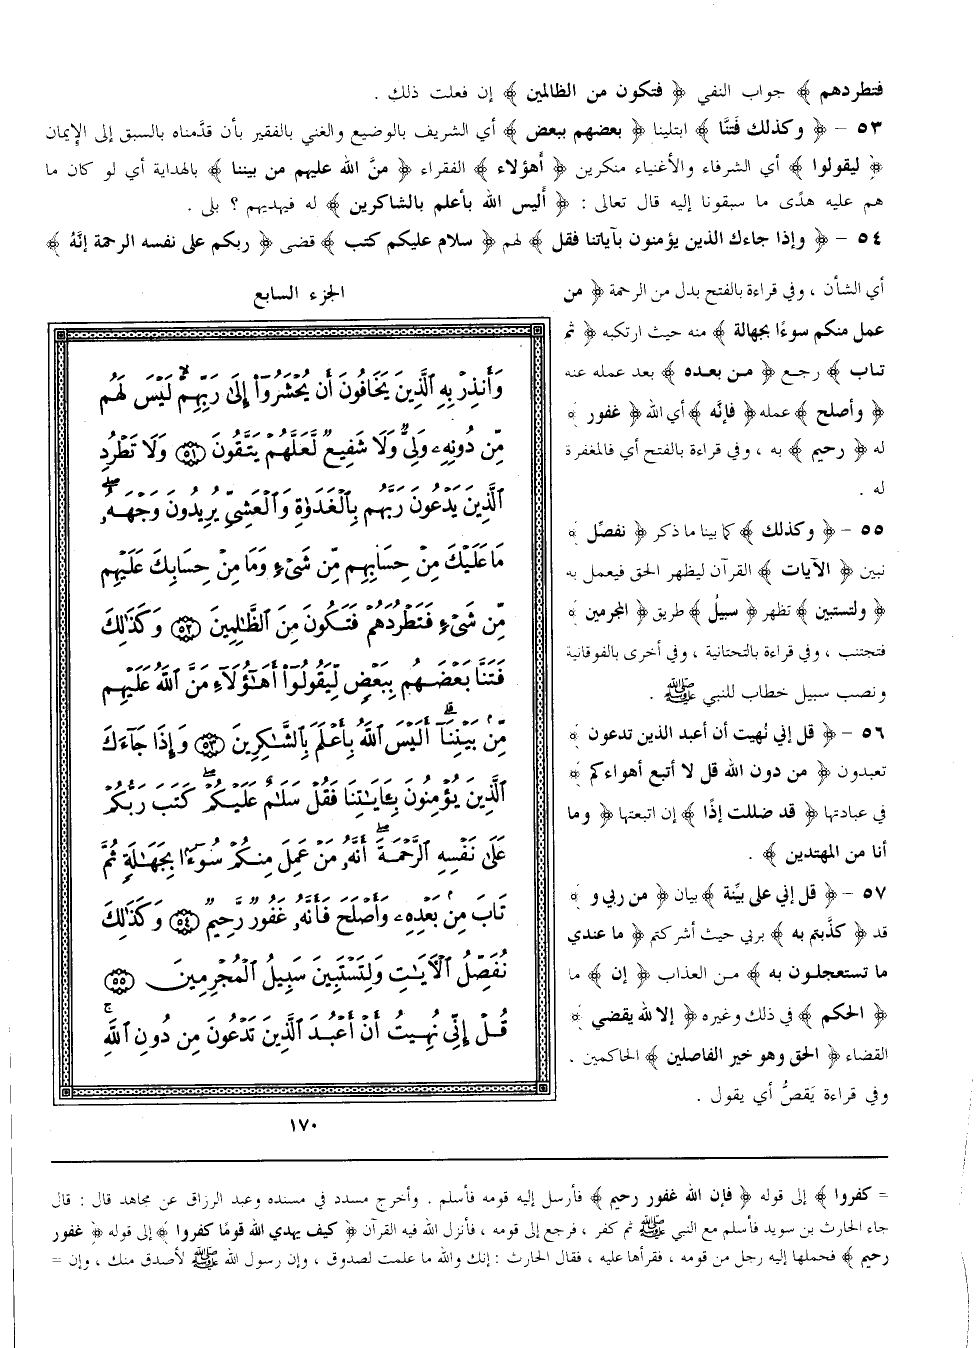 فتطردهم ﴾ جواب النفي ﴿ فتكون من الظالمين ﴾ إن فعلت ذلك .
٥٣ - ﴿ وكذلك فَتَنَّا ﴾ ابتلينا ﴿ بعضهم ببعض ﴾ أي الشريف بالوضيع والغني بالفقير بأن قدَّمناه بالسبق إلى الإيمان
﴿ ليقولوا ﴾ أي الشرفاء والأغنياء منكرين ﴿ أهؤلاء ﴾ الفقراء ﴿ منَّ الله عليهم من بيننا ﴾ بالهداية أي لو كان ما
هم عليه هدًى ما سبقونا إليه قال تعالى : ﴿ أليس الله بأعلم بالشاكرين ﴾ له فيهديهم ؟ بلى .
٥٤ - ﴿ وإذا جاءك الذين يؤمنون بآياتنا فقل ﴾ لهم ﴿ سلام عليكم كتب ﴾ قضى ﴿ ربكم على نفسه الرحمة إنَّهُ ﴾
أي الشأن ، وفي قراءة بالفتح بدل من الرحمة ﴿ من
عمل منكم سوءًا بجهالة ﴾ منه حيث ارتكبه ﴿ ثم
تاب ﴾ رجع ﴿ من بعده ﴾ بعد عمله عنه
﴿ وأصلح ﴾ عمله ﴿ فإنَّه ﴾ أي الله ﴿ غفور ﴾
له ﴿ رحيم ﴾ به ، وفي قراءة بالفتح أي فالمغفرة
له .
٥٥ - ﴿ وكذلك ﴾ كما بينا ما ذكر ﴿ نفصِّل ﴾
نبين ﴿ الآيات ﴾ القرآن ليظهر الحق فيعمل به
﴿ ولتستبين ﴾ تظهر ﴿ سبيلُ ﴾ طريق ﴿ المجرمين ﴾
فتجتنب ، وفي قراءة بالتحتانية ، وفي أخرى بالفوقانية
ونصب سبيل خطاب للنبي ﷺ .
٥٦ - ﴿ قل إني نُهيت أن أعبد الذين تدعون ﴾
تعبدون ﴿ من دون الله قل لا أتبع أهواءكم ﴾
في عبادتها ﴿ قد ضللت إذًا ﴾ إن اتبعتها ﴿ وما
أنا من المهتدين ﴾ .
٥٧ - ﴿ قل إني على بيِّنة ﴾ بيان ﴿ من ربي و ﴾
قد ﴿ كذَّبتم به ﴾ بربي حيث أشركتم ﴿ ما عندي
ما تستعجلون به ﴾ من العذاب ﴿ إن ﴾ ما
﴿ الحكم ﴾ في ذلك وغيره ﴿ إلا لله يقضي ﴾
القضاء ﴿ الحق وهو خير الفاصلين ﴾ الحاكمين .
وفي قراءة يَقصُّ أي يقول .
الجزء السابع
وَأَنذِرْ بِهِ ٱلَّذِينَ يَخَافُونَ أَن يُحْشَرُوٓا۟ إِلَىٰ رَبِّهِمْ ۙ لَيْسَ لَهُم
مِّن دُونِهِۦ وَلِىٌّ وَلَا شَفِيعٌ لَّعَلَّهُمْ يَتَّقُونَ ﴿٥١﴾ وَلَا تَطْرُدِ
ٱلَّذِينَ يَدْعُونَ رَبَّهُم بِٱلْغَدَوٰةِ وَٱلْعَشِىِّ يُرِيدُونَ وَجْهَهُۥ ۖ
مَا عَلَيْكَ مِنْ حِسَابِهِم مِّن شَىْءٍ وَمَا مِنْ حِسَابِكَ عَلَيْهِم
مِّن شَىْءٍ فَتَطْرُدَهُمْ فَتَكُونَ مِنَ ٱلظَّٰلِمِينَ ﴿٥٢﴾ وَكَذَٰلِكَ
فَتَنَّا بَعْضَهُم بِبَعْضٍ لِّيَقُولُوٓا۟ أَهَٰٓؤُلَآءِ مَنَّ ٱللَّهُ عَلَيْهِم
مِّنۢ بَيْنِنَآ ۗ أَلَيْسَ ٱللَّهُ بِأَعْلَمَ بِٱلشَّٰكِرِينَ ﴿٥٣﴾ وَإِذَا جَآءَكَ
ٱلَّذِينَ يُؤْمِنُونَ بِـَٔايَٰتِنَا فَقُلْ سَلَٰمٌ عَلَيْكُمْ ۖ كَتَبَ رَبُّكُمْ
عَلَىٰ نَفْسِهِ ٱلرَّحْمَةَ ۖ أَنَّهُۥ مَنْ عَمِلَ مِنكُمْ سُوٓءًۢا بِجَهَٰلَةٍ ثُمَّ
تَابَ مِنۢ بَعْدِهِۦ وَأَصْلَحَ فَأَنَّهُۥ غَفُورٌ رَّحِيمٌ ﴿٥٤﴾ وَكَذَٰلِكَ
نُفَصِّلُ ٱلْآيَٰتِ وَلِتَسْتَبِينَ سَبِيلُ ٱلْمُجْرِمِينَ ﴿٥٥﴾
قُلْ إِنِّى نُهِيتُ أَنْ أَعْبُدَ ٱلَّذِينَ تَدْعُونَ مِن دُونِ ٱللَّهِ ۚ
١٧٠
= كفروا ﴾ إلى قوله ﴿ فإن الله غفور رحيم ﴾ فأرسل إليه قومه فأسلم . وأخرج مسدد في مسنده وعبد الرزاق عن مجاهد قال : قال
جاء الحارث بن سويد فأسلم مع النبي ﷺ ثم كفر ، فرجع إلى قومه ، فأنزل الله فيه القرآن ﴿ كيف يهدي الله قومًا كفروا ﴾ إلى قوله ﴿ غفور
رحيم ﴾ فحملها إليه رجل من قومه ، فقرأها عليه ، فقال الحارث : إنك والله ما علمت لصدوق ، وإن رسول الله ﷺ لأصدق منك ، وإن =